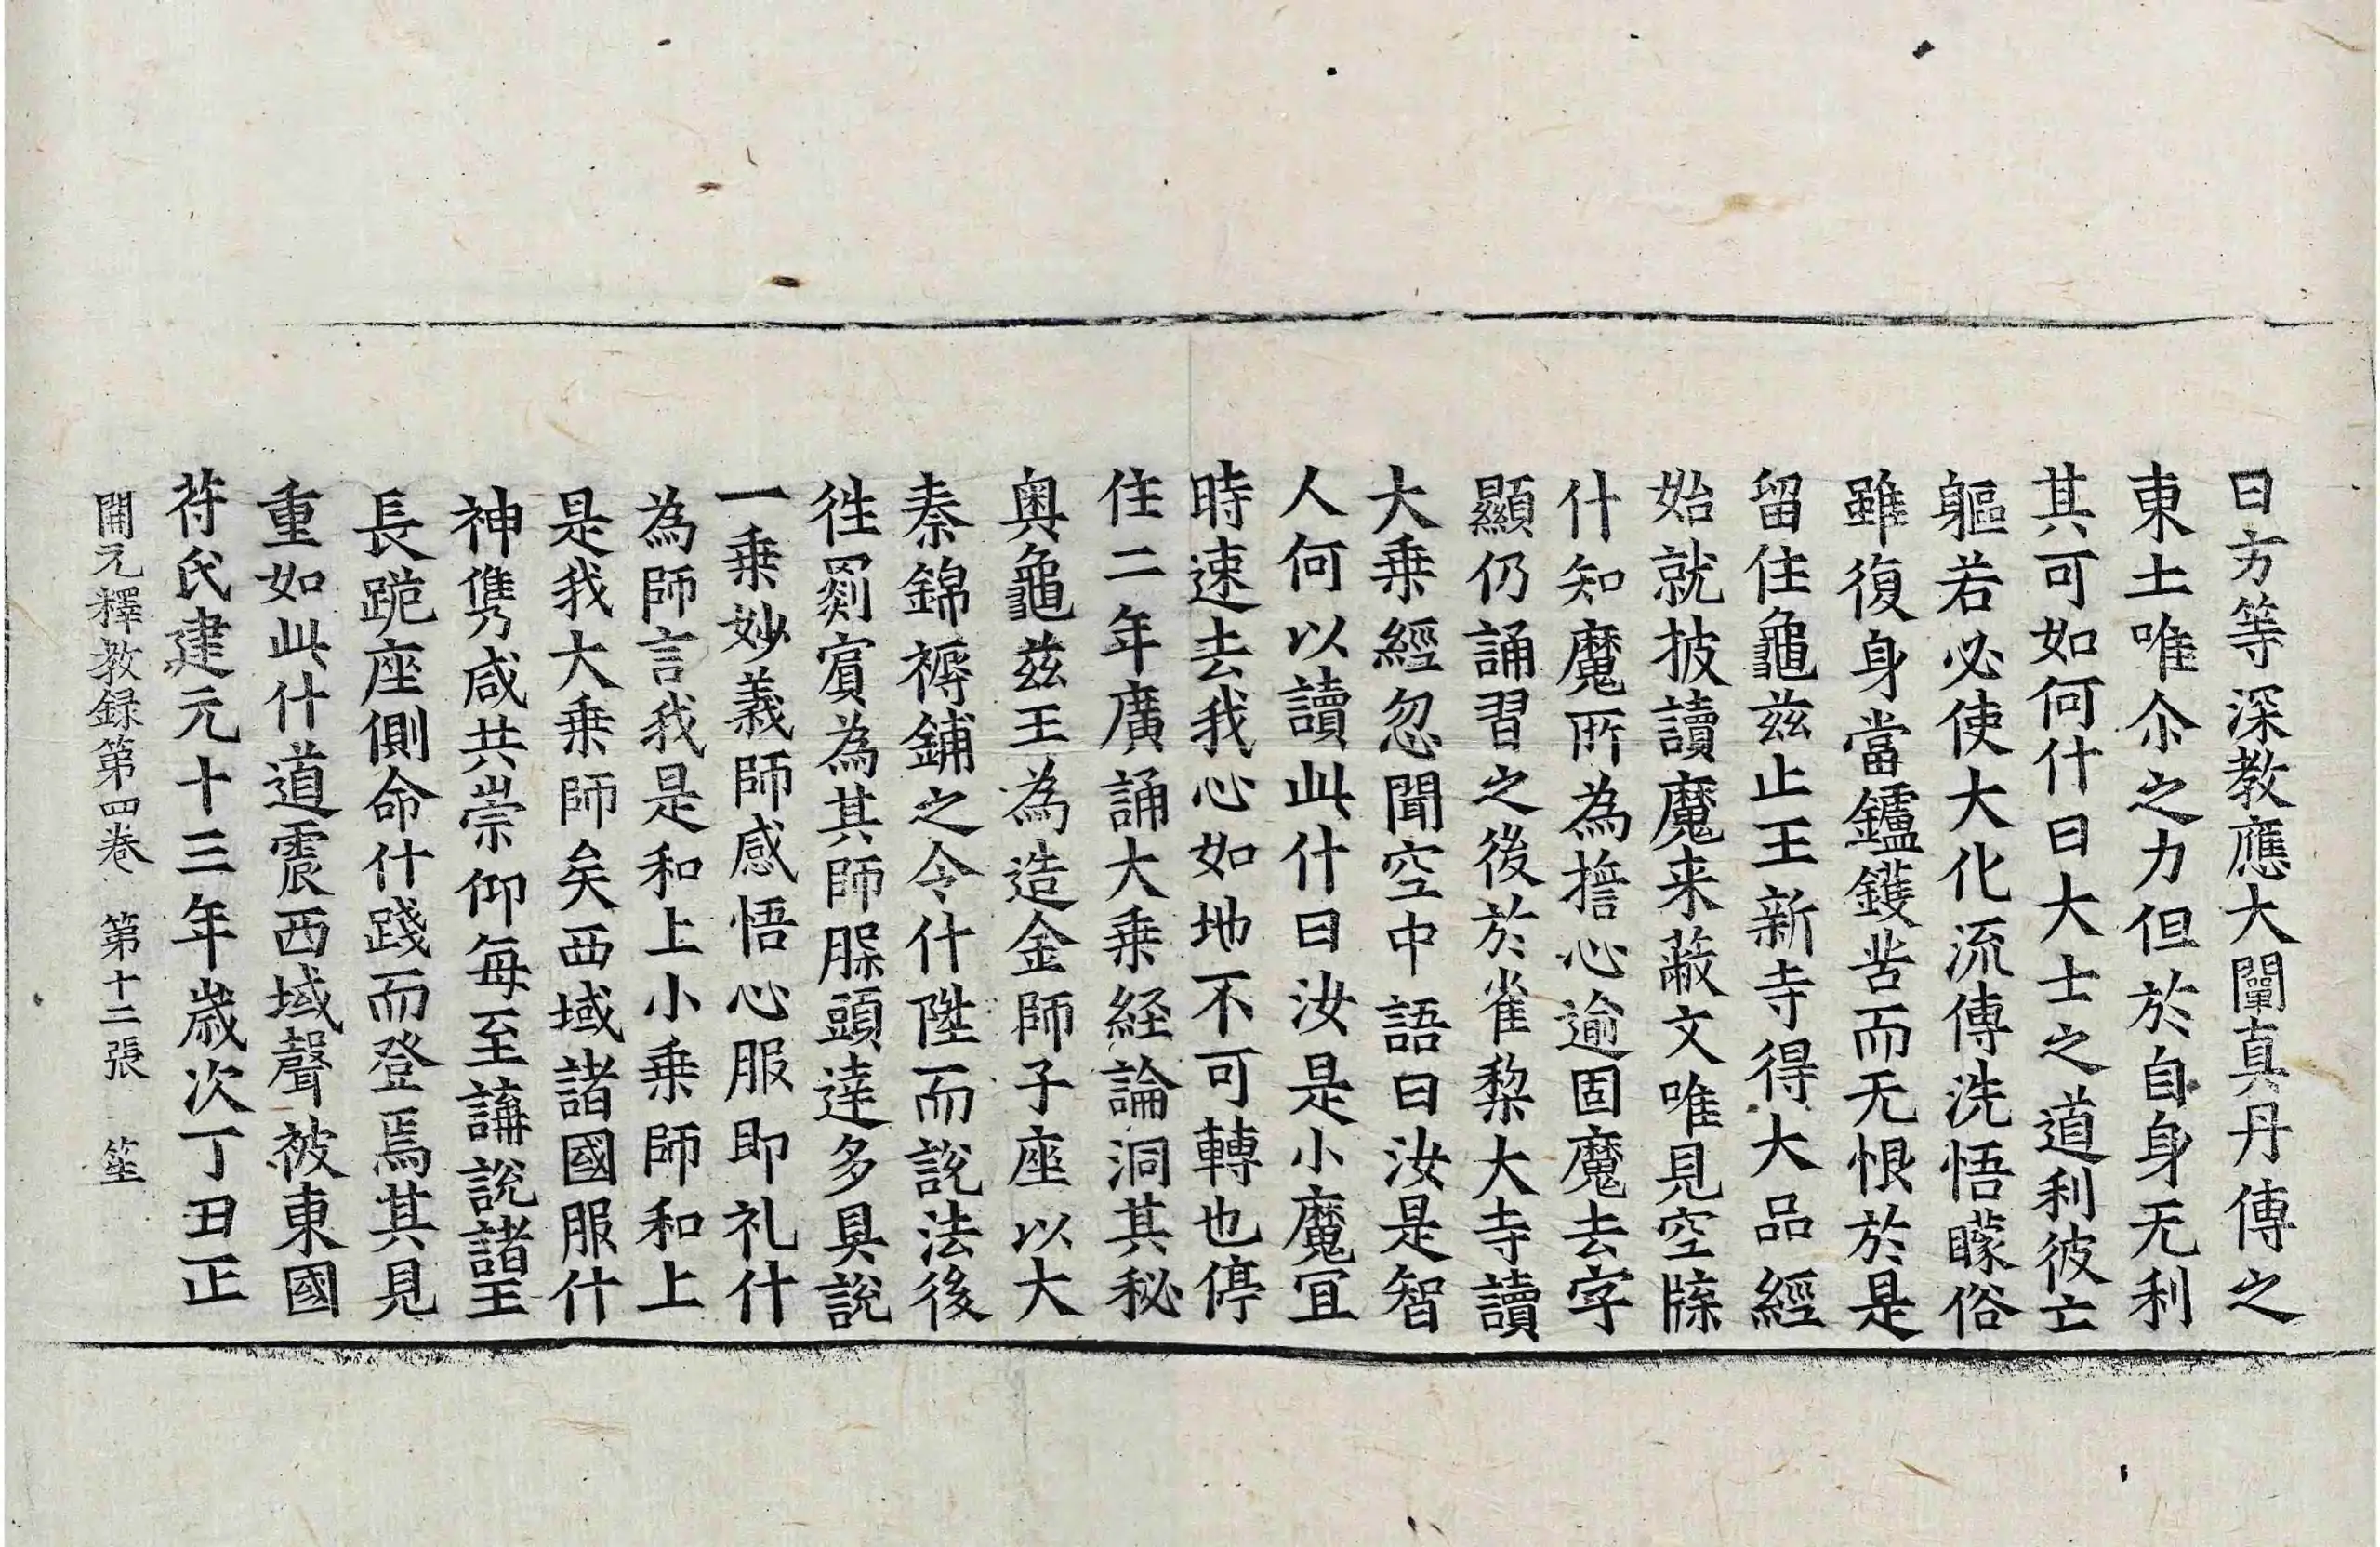 曰方等深教應大闡真丹傳之
東土唯尒之力但於自身无利
其可如何什曰大士之道利彼亡
軀若必使大化流傳洗悟矇俗
雖復身當鑪鑊苦而无恨於是
留住龜兹止王新寺得大品經
始就披讀魔来蔽文唯見空牒
什知魔所為擔心逾固魔去字
顯仍誦習之後於雀棃大寺讀
大乗經忽聞空中語曰汝是智
人何以讀此什曰汝是小魔冝
時速去我心如地不可轉也停
住二年廣誦大乗経論洞其秘
奥龜兹王為造金師子座以大
秦錦褥鋪之令什陞而說法後
徃罽賔為其師𦡀頭逹多具說
一乗妙義師感悟心服即礼什
為師言我是和上小乗師和上
是我大乗師矣西域諸國服什
神儁咸共崇仰每至講說諸王
長跪座側命什踐而登焉其見
重如此什道震西域聲被東國
苻氏建元十三年歲次丁丑正
開元釋教録第四卷 第十二張 笙